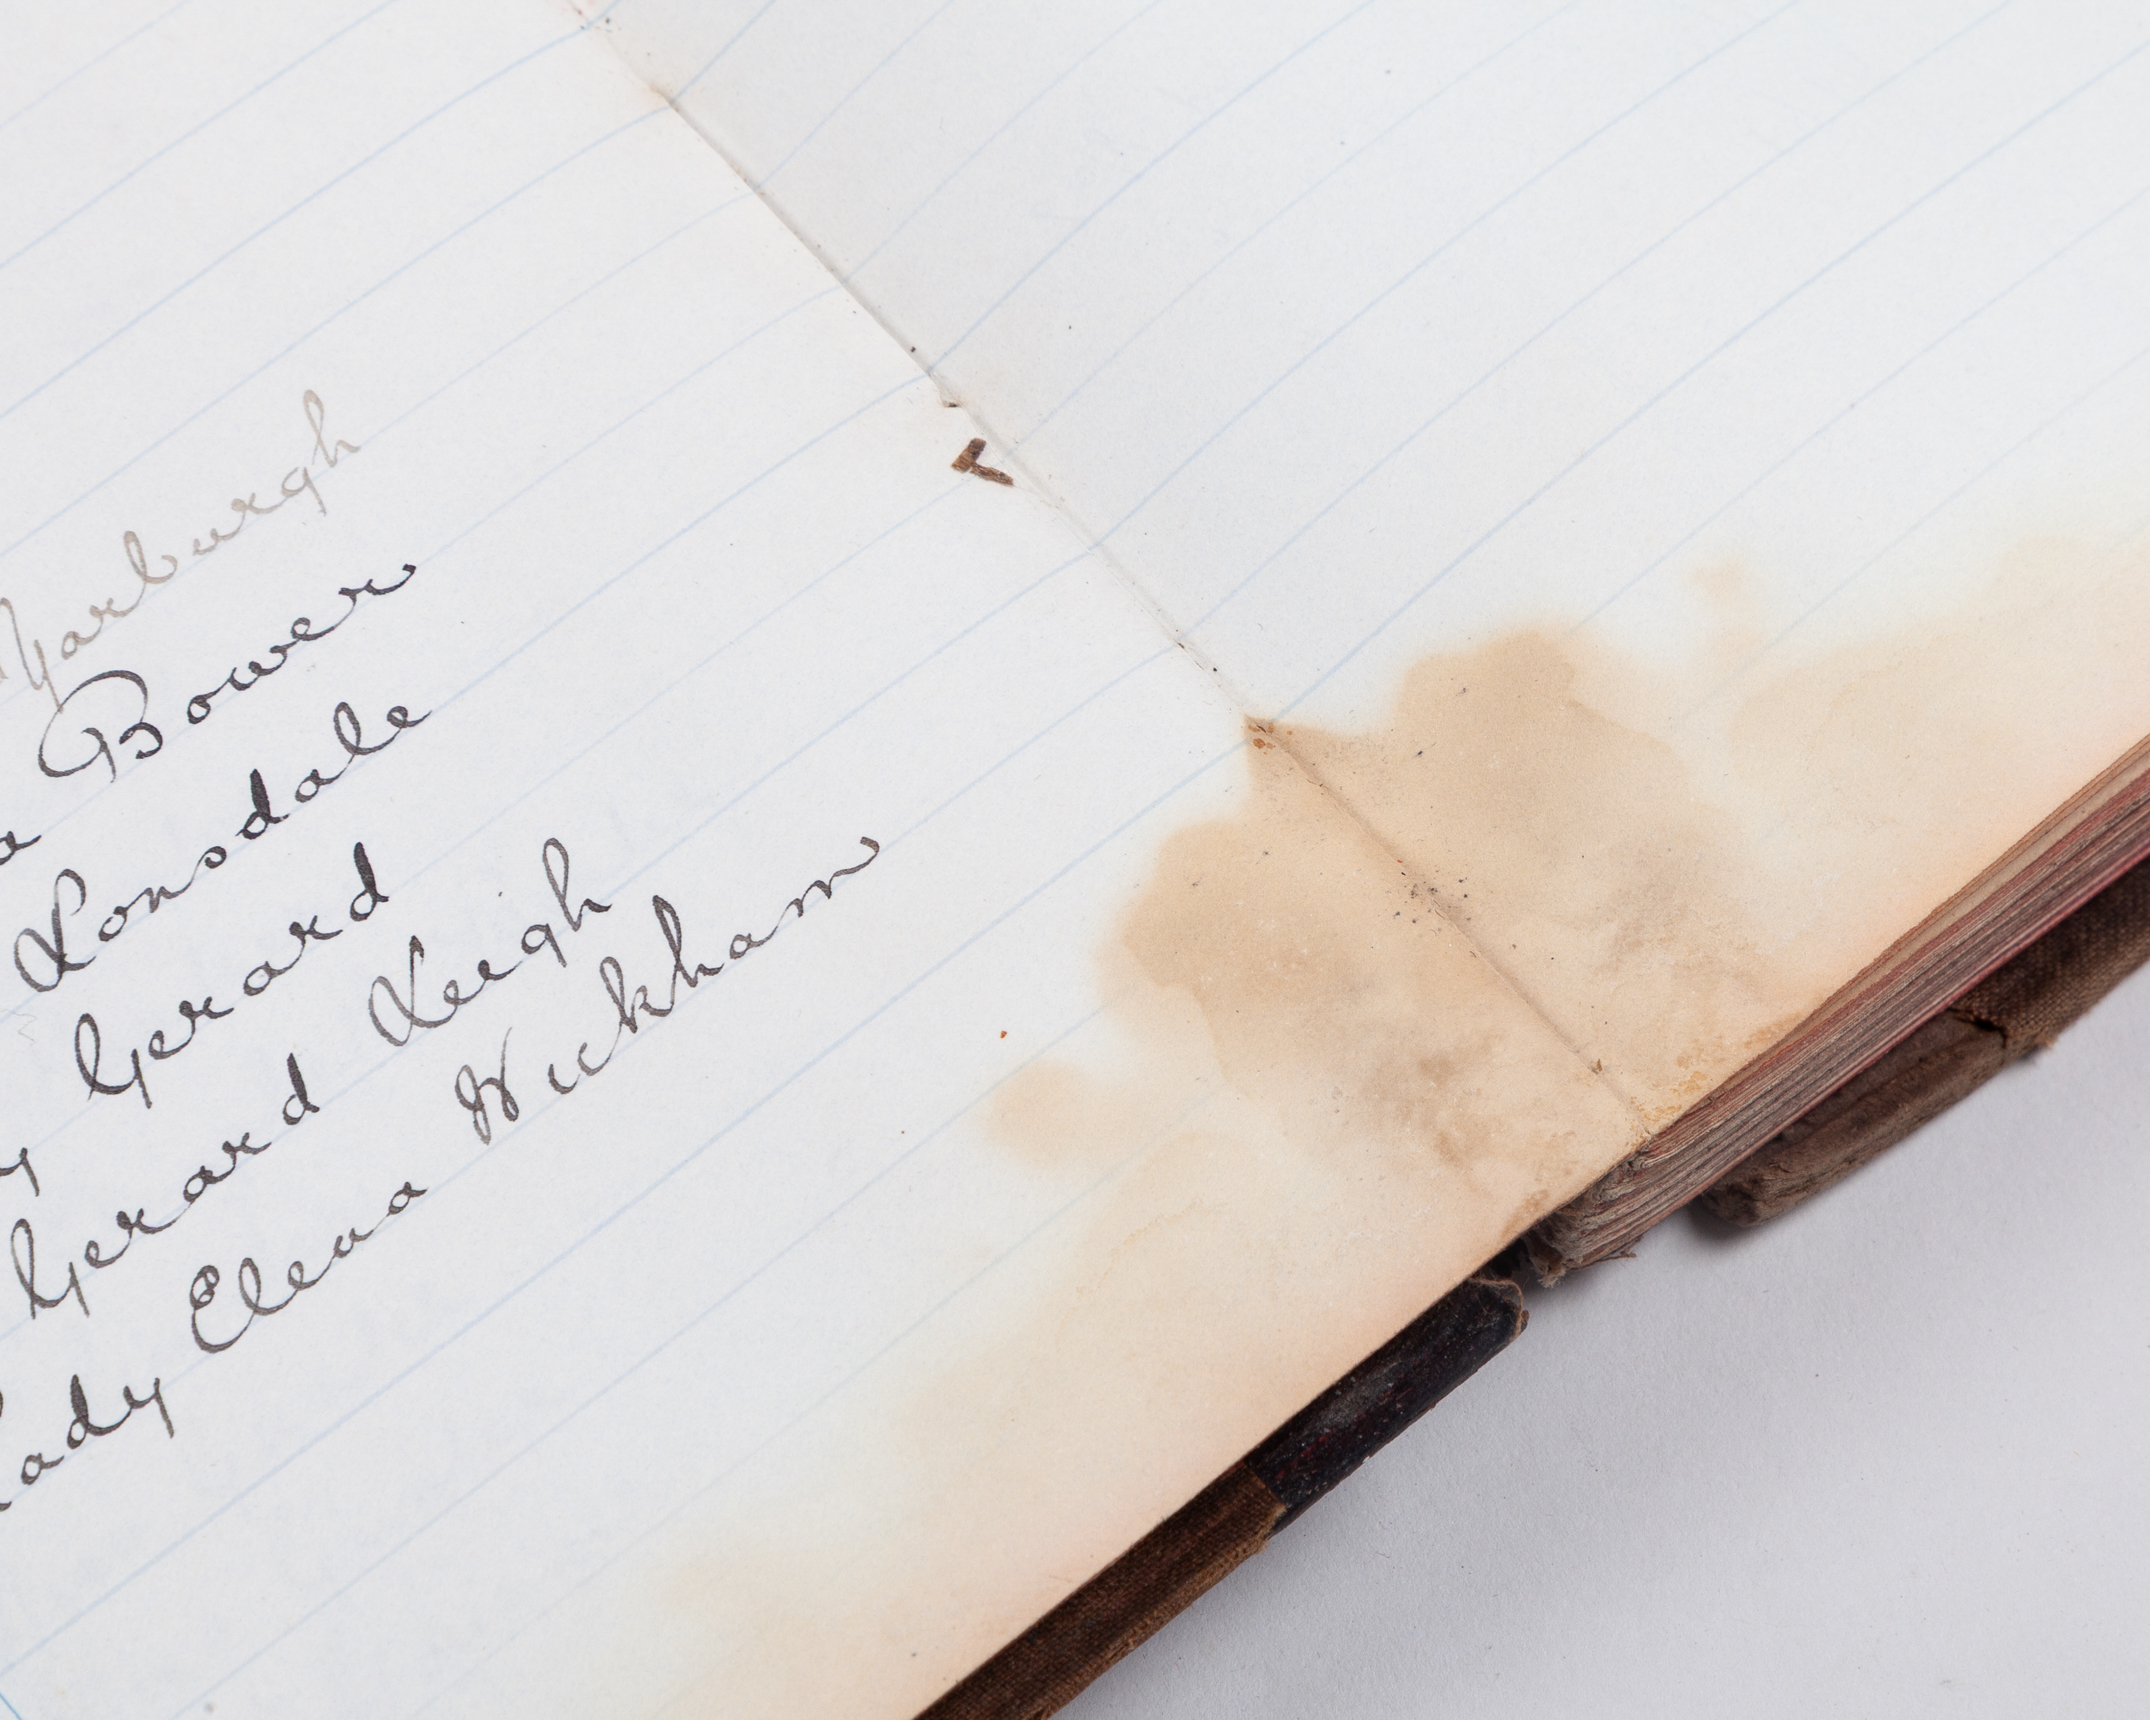 Yarburgh
a Bower
Lonsdale
y Gerard
Gerard Leigh
Lady Elena Wickham